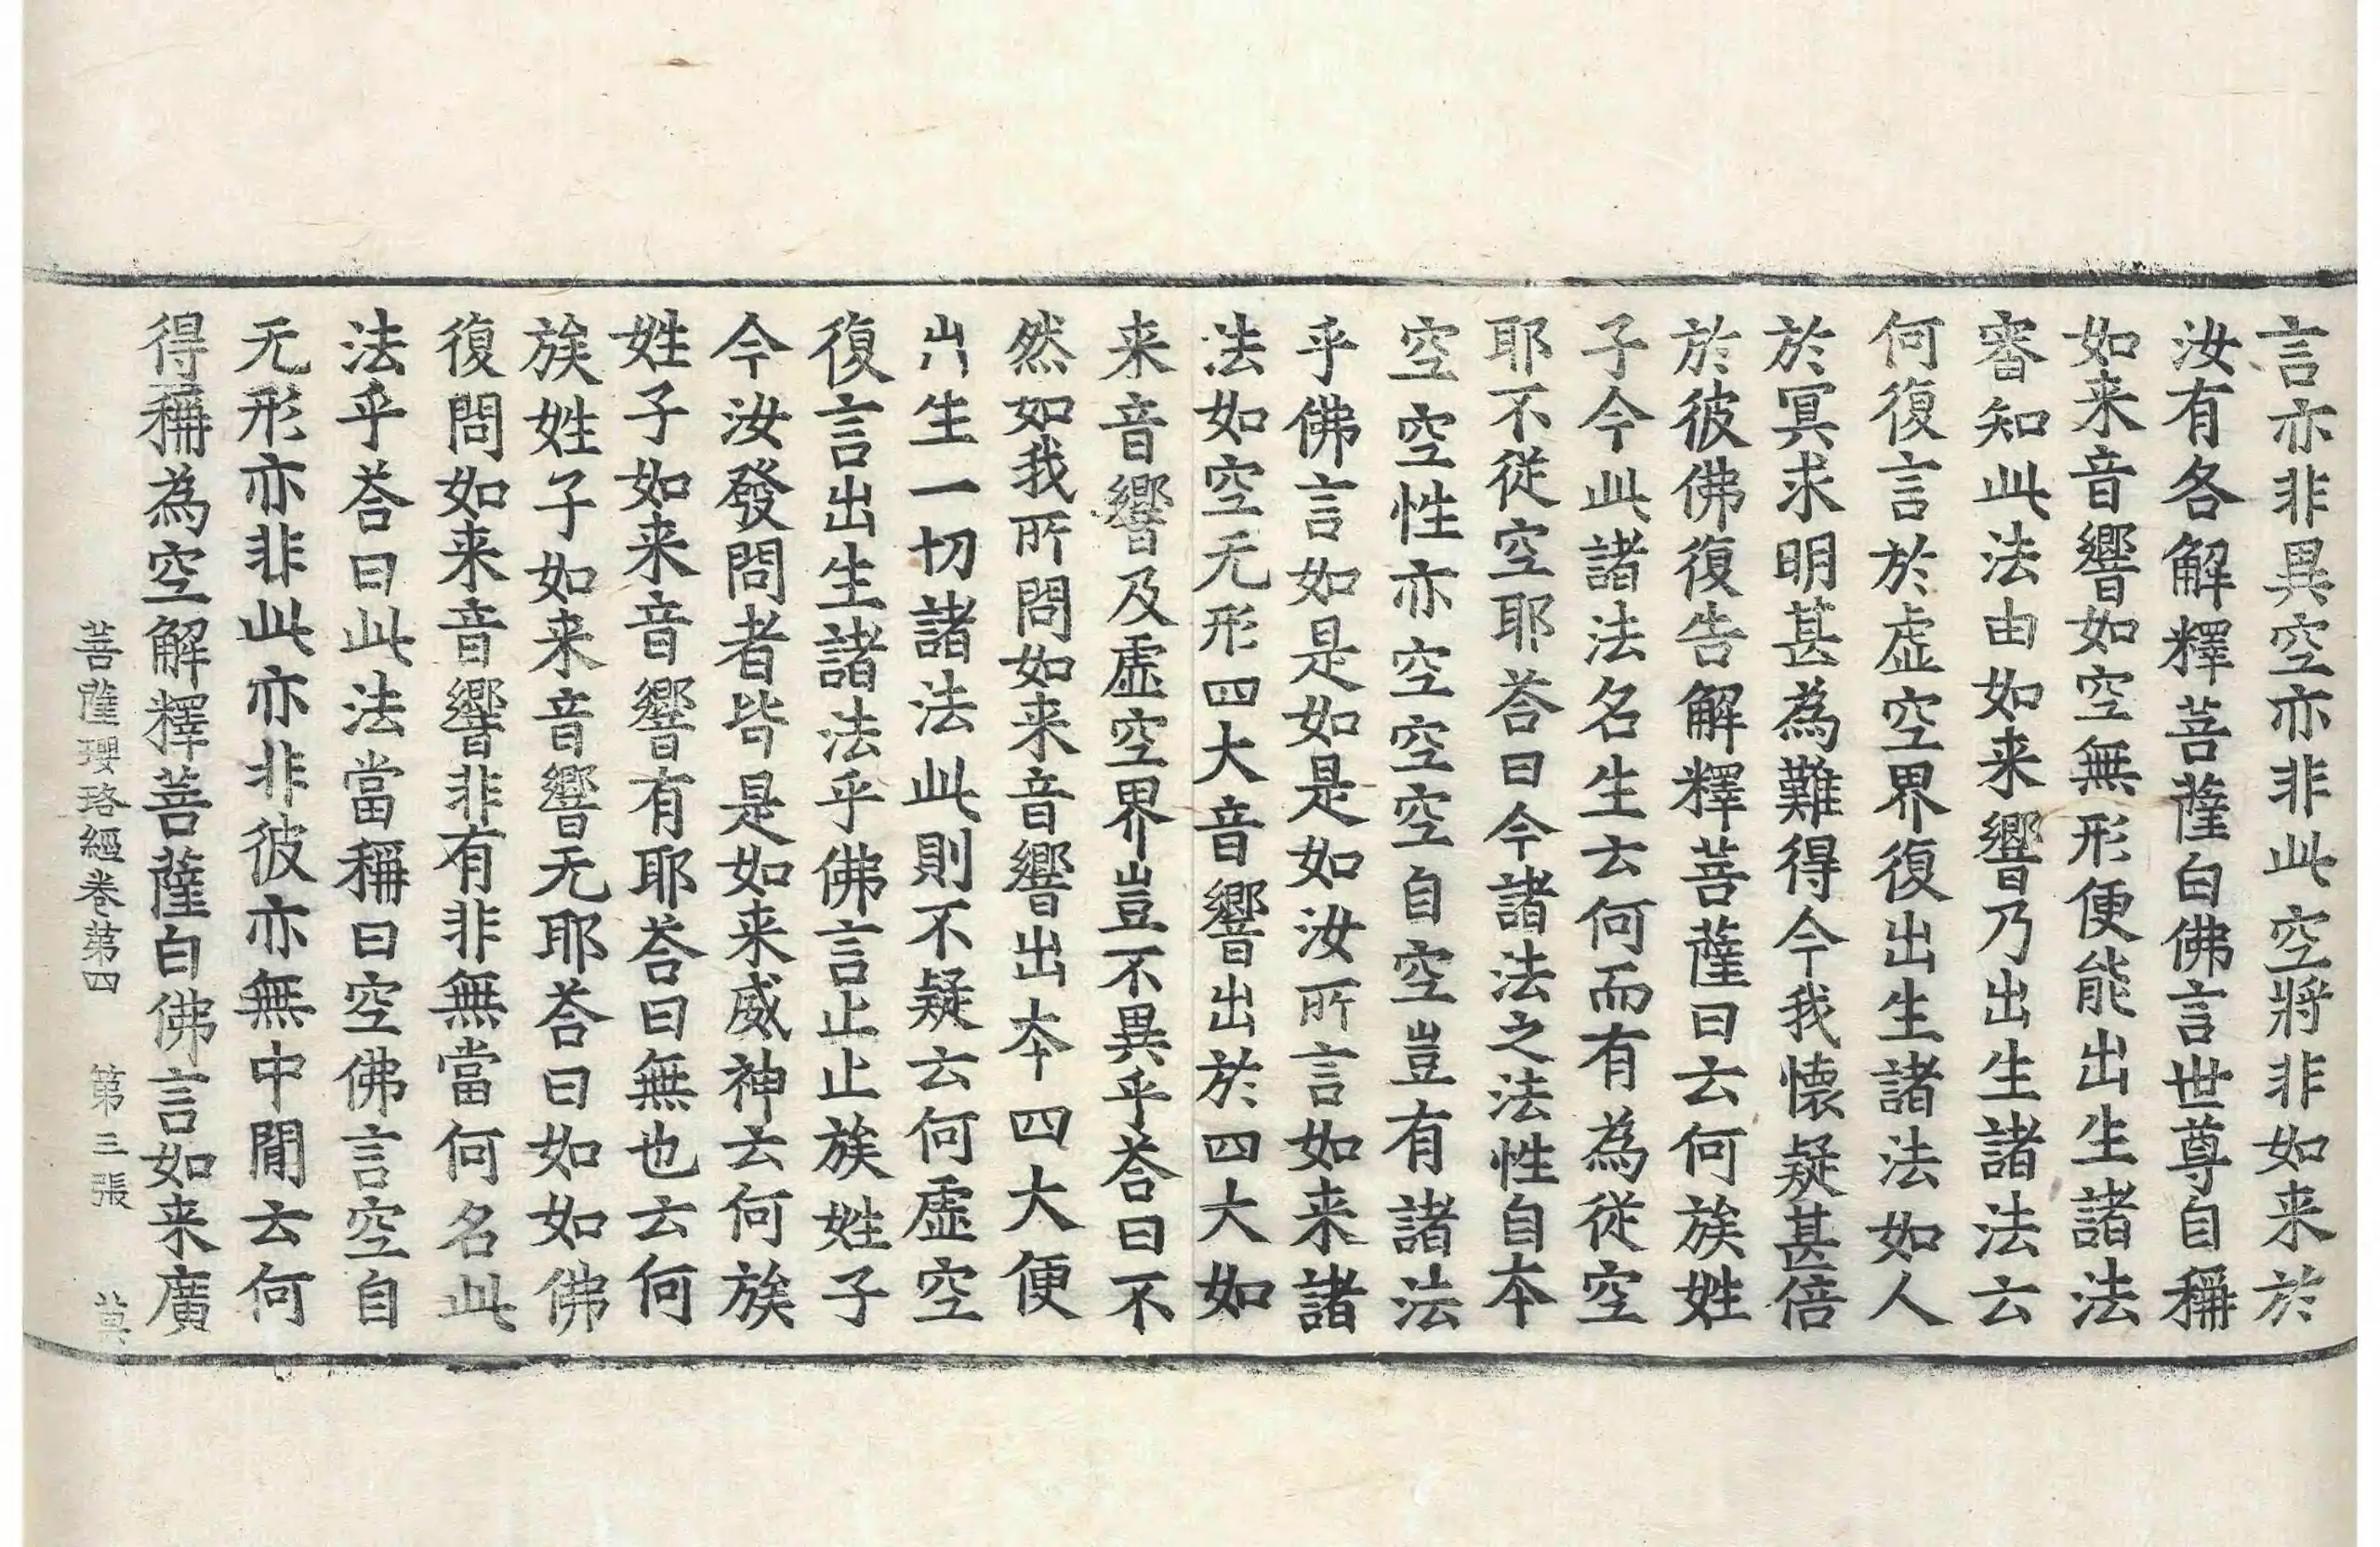 言亦非異空亦非此空將非如来於
汝有各解釋菩薩白佛言世尊自稱
如来音響如空無形便能出生諸法
審知此法由如来響乃出生諸法云
何復言於虛空界復出生諸法如人
於冥求明甚為難得今我懷疑甚倍
於彼佛復告解釋菩薩曰云何族姓
子今此諸法名生云何而有為從空
耶不從空耶荅曰今諸法之法性自本
空空性亦空空空自空豈有諸法
乎佛言如是如是如汝所言如来諸
法如空无形四大音響出於四大如
来音響及虛空界豈不異乎荅曰不
然如我所問如来音響出本四大便
出生一切諸法此則不疑云何虛空
復言出生諸法乎佛言止止族姓子
今汝發問者皆是如来威神云何族
姓子如来音響有耶荅曰無也云何
族姓子如来音響无耶荅曰如如佛
復問如来音響非有非無當何名此
法乎荅曰此法當稱曰空佛言空自
无形亦非此亦非彼亦無中閒云何
得稱為空解釋菩薩白佛言如来廣
菩薩瓔珞經卷第四 第三張 莫